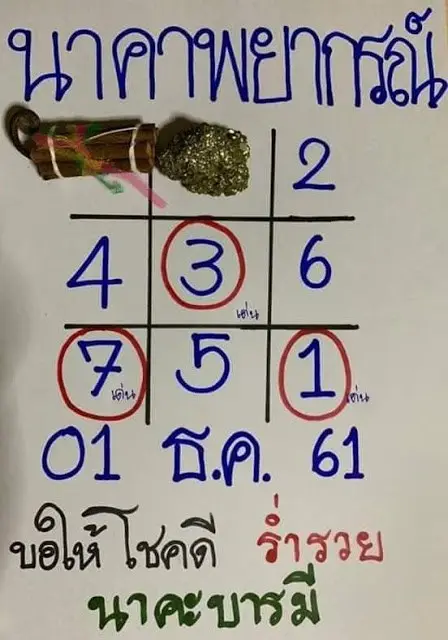 นาคาพยากรณ์
2
4 3 6
เด่น
7 5 1
เด่น เด่น
01 ธ.ค. 61
ขอให้ โชคดี ร่ำรวย
นาคะบารมี